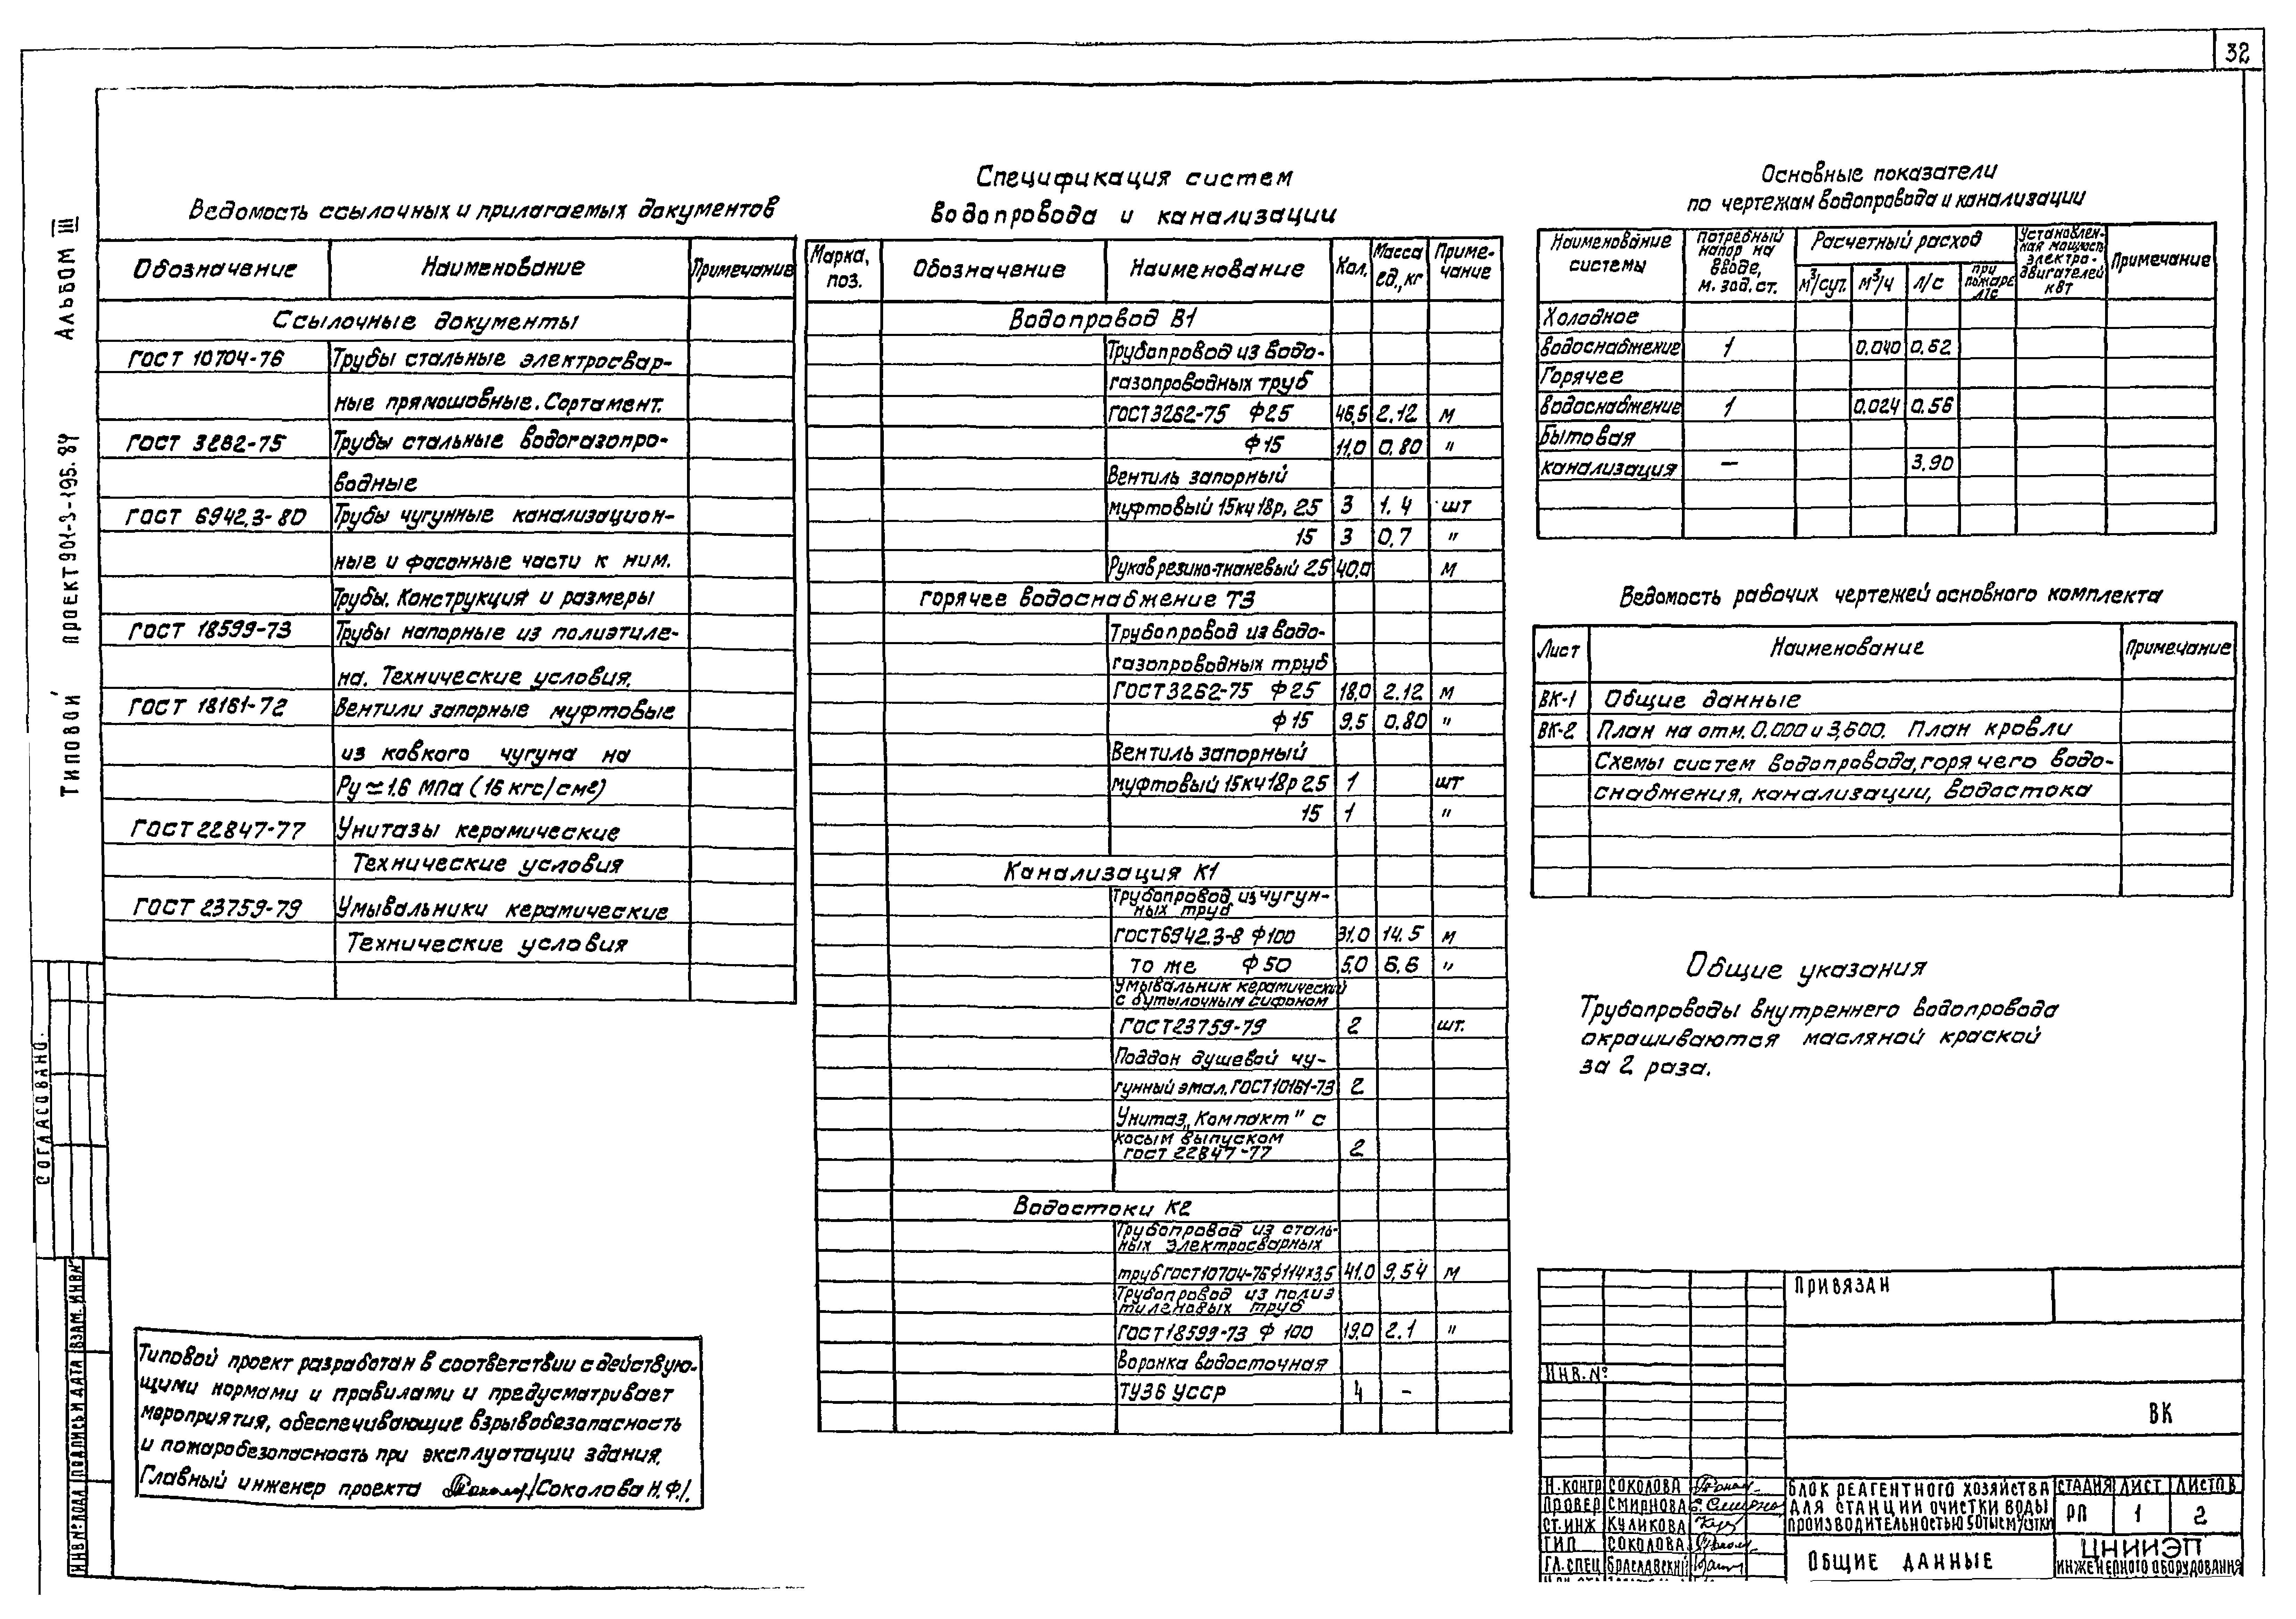 32
Альбом III
Типовой проект 901-3-195.84
Согласовано.
Взам. инв №
Подпись и дата
Инв № подл
Ведомость ссылочных и прилагаемых документов
Обозначение Наименование Примечание
Ссылочные документы
ГОСТ 10704-76 Трубы стальные электросвар-
ные прямошовные. Сортамент.
ГОСТ 3262-75 Трубы стальные водогазопро-
водные
ГОСТ 6942.3-80 Трубы чугунные канализацион-
ные и фасонные части к ним.
Трубы. Конструкция и размеры
ГОСТ 18599-73 Трубы напорные из полиэтиле-
на. Технические условия.
ГОСТ 18161-72 Вентили запорные муфтовые
из ковкого чугуна на
Ру≃1.6 МПа (16 кгс/см²)
ГОСТ 22847-77 Унитазы керамические
Технические условия
ГОСТ 23759-79 Умывальники керамические
Технические условия
Типовой проект разработан в соответствии с действую-
щими нормами и правилами и предусматривает
мероприятия, обеспечивающие взрывобезопасность
и пожаробезопасность при эксплуатации здания.
Главный инженер проекта /Соколова Н.Ф./.
Спецификация систем
водопровода и канализации
Марка, поз. Обозначение Наименование Кол. Масса ед., кг Приме-чание
Водопровод В1
Трубопровод из водо-
газопроводных труб
ГОСТ3262-75 Ф25 46,5 2.12 м
Ф15 11,0 0,80 "
Вентиль запорный
муфтовый 15кч18р, 25 3 1.4 шт
15 3 0,7 "
Рукав резино-тканевый 25 40,0 м
Горячее водоснабжение Т3
Трубопровод из водо-
газопроводных труб
ГОСТ3262-75 Ф25 18,0 2.12 м
Ф15 9,5 0,80 "
Вентиль запорный
муфтовый 15кч18р 25 1 шт
15 1 "
Канализация К1
Трубопровод из чугун-
ных труб
ГОСТ6942.3-8 Ф100 31.0 14.5 м
То же Ф50 5,0 6.6 "
Умывальник керамический
с бутылочным сифоном
ГОСТ23759-79 2 шт.
Поддон душевой чу-
гунный эмал. ГОСТ10161-73 2
Унитаз „Компакт" с
косым выпуском
ГОСТ 22847-77 2
Водостоки К2
Трубопровод из сталь-
ных электросварных
труб ГОСТ10704-76 ф114х3,5 41.0 9,54 м
Трубопровод из полиэ
тиленовых труб
ГОСТ18599-73 Ф 100 19.0 2.1 "
Воронка водосточная
ТУ36 УССР 4 –
Основные показатели
по чертежам водопровода и канализации
Наименование системы Потребный напор на вводе, м. вод. ст. Расчетный расход м³/сут. м³/ч л/с при пожаре л/с Установлен-ная мощность электро-двигателей кВт Примечание
Холодное
водоснабжение 1 0.040 0,62
Горячее
водоснабжение 1 0,024 0.56
Бытовая
канализация – 3.90
Ведомость рабочих чертежей основного комплекта
Лист Наименование Примечание
ВК-1 Общие данные
ВК-2 План на отм. 0.000 и 3,600. План кровли
Схемы систем водопровода, горячего водо-
снабжения, канализации, водостока
Общие указания
Трубопроводы внутреннего водопровода
окрашиваются масляной краской
за 2 раза.
Привязан
Инв. №
ВК
Н.контр Соколова
Провер Смирнова
Ст.инж Куликова
ГИП Соколова
Гл.спец Браславский
Блок реагентного хозяйства
для станции очистки воды
производительностью 50 тыс м³/сутки
Стадия Лист Листов
РП 1 2
Общие данные
ЦНИИЭП
инженерного оборудования